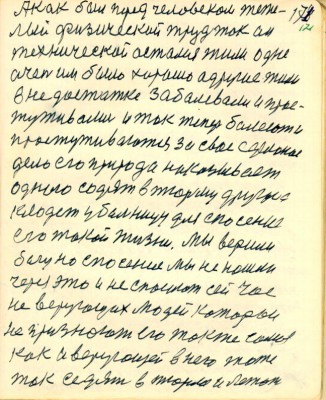 А как был пред человеком тяже-
лый физический труд так ан
технической остался жили одне
очен им было хорошо а другие жили
в недостатке Забалевали и прос-
тужвались и так тепер болеют и
простуживаются за свое садеяное
дело Его природа наказывает
одного содят в тюрму других
кладет у балницу для спасение
Его такой жизни. Мы верили
Богу но спосение мы не нашли
через это и не спасают сей час
не верующих людей которои
не признают его так же само
как и верующей в него тоже
так седят в тюрме и лежат